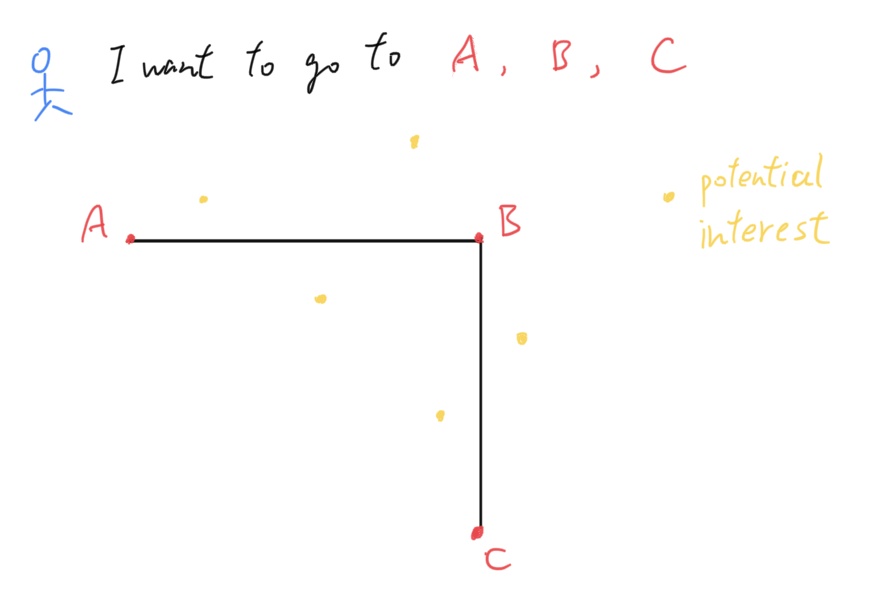 I want to go to A, B, C
potential
interest
A
B
C